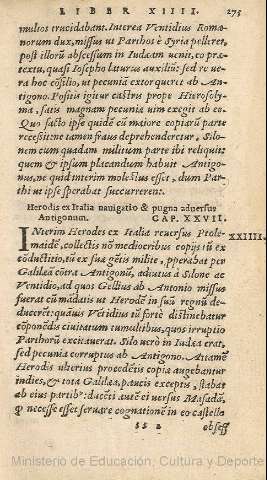 LIBER XIIII. 275
mulios trucidabant. Interea Ventidius Romæ-
norum dux, missus ut Parthos è Syria pelleret,
post illorũ abscessum in Iudæam uenit, eo præ-
textu, quasi Iosepho laturus auxiliũ: sed re ue-
ra hoc cõsilio, ut pecuniã extorqueret ab An-
tigono. Positis igitur castris prope Hierosoly-
ma, satis magnam pecuniæ uim exegit ab eo.
Quo facto ipse quidẽ cũ maiore copiarũ parte
recessit: ne tamen fraus deprehenderetur, Silo-
nem cum quadam militum parte ibi reliquit:
quem & ipsum placandum habuit Antigo-
nus, ne quid interim molestus esset, dum Par-
thi ut ipse sperabat succurrerent.
Herodis ex Italia nauigatio & pugna aduersus
Antigonum. CAP. XXVII.
INterim Herodes ex Italia reuersus Ptole- XXIIII.
maidẽ, collectis nõ mediocribus copijs tũ ex
cõductitio, tũ ex suæ gẽtis milite, pperabat per
Galileã cõtra Antigonũ, adiutus à Silone ac
Ventidio, ad quos Gellius ab Antonio missus
fuerat cũ mãdatis ut Herodẽ in suũ regnũ de-
ducerẽt: quãuis Vẽtidius tũ fortè distinebatur
cõponẽdis ciuitatum tumultibus, quos irruptio
Parthorũ excitauerat. Silo uerò in Iudæa erat,
sed pecunia corruptus ab Antigono. Attamẽ
Herodis ulterius procedẽtis copiæ augebantur
indies, & tota Galilæa, paucis exceptis, stabat
ab eius partib⁹: dacẽti autẽ ei uersus Masadã,
q necesse esset seruare cognationẽ in eo castello
SS 2 obsess
Ministerio de Educación, Cultura y Deporte